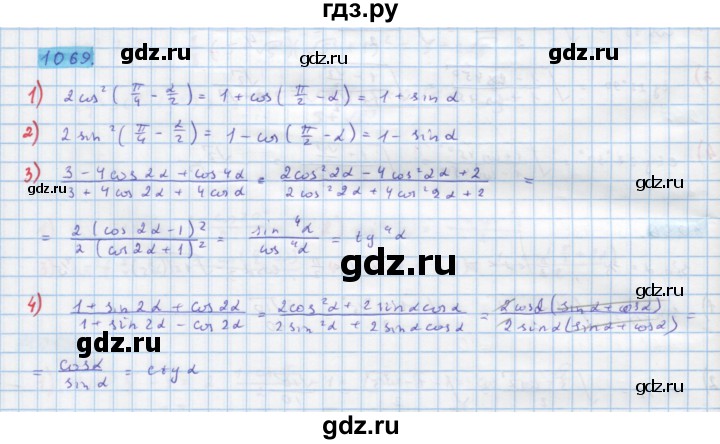 гдз.ру
1069.
gdz.ru gdz.ru
1) 2cos²(π/4 - α/2) = 1 + cos(π/2 - α) = 1 + sin α
2) 2 sin²(π/4 - α/2) = 1 - cos(π/2 - α) = 1 - sin α
gdz.ru gdz.ru
3) (3 - 4cos 2α + cos 4α)/(3 + 4cos 2α + 4cos α) = (2cos²2α - 4cos²2α + 2)/(2cos²2α + 4cos²2α + 2) =
gdz.ru gdz.ru
= 2(cos 2α - 1)²/2(cos 2α + 1)² = sin⁴α/cos⁴α = tg⁴α
gdz.ru
4) (1 + sin 2α + cos 2α)/(1 + sin 2α - cos 2α) = (2cos²α + 2 sin α cos α)/(2 sin²α + 2 sin α cos α) = 2cos α(sin α + cos α)/2 sin α(sin α + cos α) =
gdz.ru gdz.ru
= cos α/sin α = ctg α
gdz.ru gdz.ru
gdz.ru